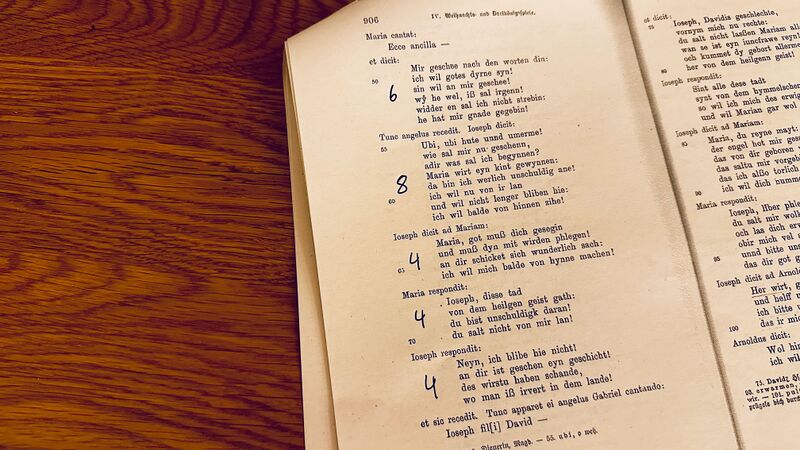 906
IV. Weihnachts- und Dreikönigspiele.
Maria cantat:
Ecce ancilla —
et dicit:
Mir geschee nach den worten din:
50 ich wil gotes dyrne syn!
6 sin wil an mir geschee!
wŷ he wel, iß sal irgenn!
widder en sal ich nicht strebin:
he hat mir gnade gegebin!
Tunc angelus recedit. Ioseph dicit:
55 Ubi, ubi hute unnd umerme!
wie sal mir nu geschenn,
adir was sal ich begynnen?
8 Maria wirt eyn kint gewynnen:
da bin ich werlich unschuldig ane!
60 ich wil nu von ir lan
und wil nicht lenger bliben hie:
ich wil balde von hinnen zihe!
Ioseph dicit ad Mariam:
Maria, got muß dich gesegin
4 und muß dyn mit wirden phlegen!
65 an dir schicket sich wunderlich sach:
ich wil mich balde von hynne machen!
Maria respondit:
Ioseph, disse tad
4 von dem heilgen geist gath:
du bist unschuldigk daran!
70 du salt nicht von mir lan!
Ioseph respondit:
Neyn, ich blibe hie nicht!
4 an dir ist geschen eyn geschicht!
des wirstu haben schande,
wo man iß irvert in dem lande!
et sic recedit. Tunc apparet ei angelus Gabriel cantando:
Ioseph fil[i] David —
Dienerin, Magd. — 55. ubi, o weh.
et dicit:
Ioseph, Davidis geschlechte,
vornym mich nu rechte:
du salt nicht laaßen Mariam
wan se ist eyn iuncfrawe
och kummet dy gebort
her von dem heilgenn geist!
Ioseph respondit:
Sint alle dese tadt
synt von dem hymmelschen
so wil ich mich des erwig
und wil Mariam gar wol
Ioseph dicit ad Mariam:
85 Maria, du reyne mayt:
der engel hot mir ges
das von dir geboren
das saltu mir vorgebe
das ich alßo torlich
90 ich wil dich numm
Maria respondit:
Ioseph, Hber phle
du salt mir wol
och las dich erw
obir mich vel
95 unnd bitte un
das dir got g
Ioseph dicit ad Arnold
Her wirt, g
und helff
ich bitte
100 das ir mi
Arnoldus dicit:
Wol hin
ich wil